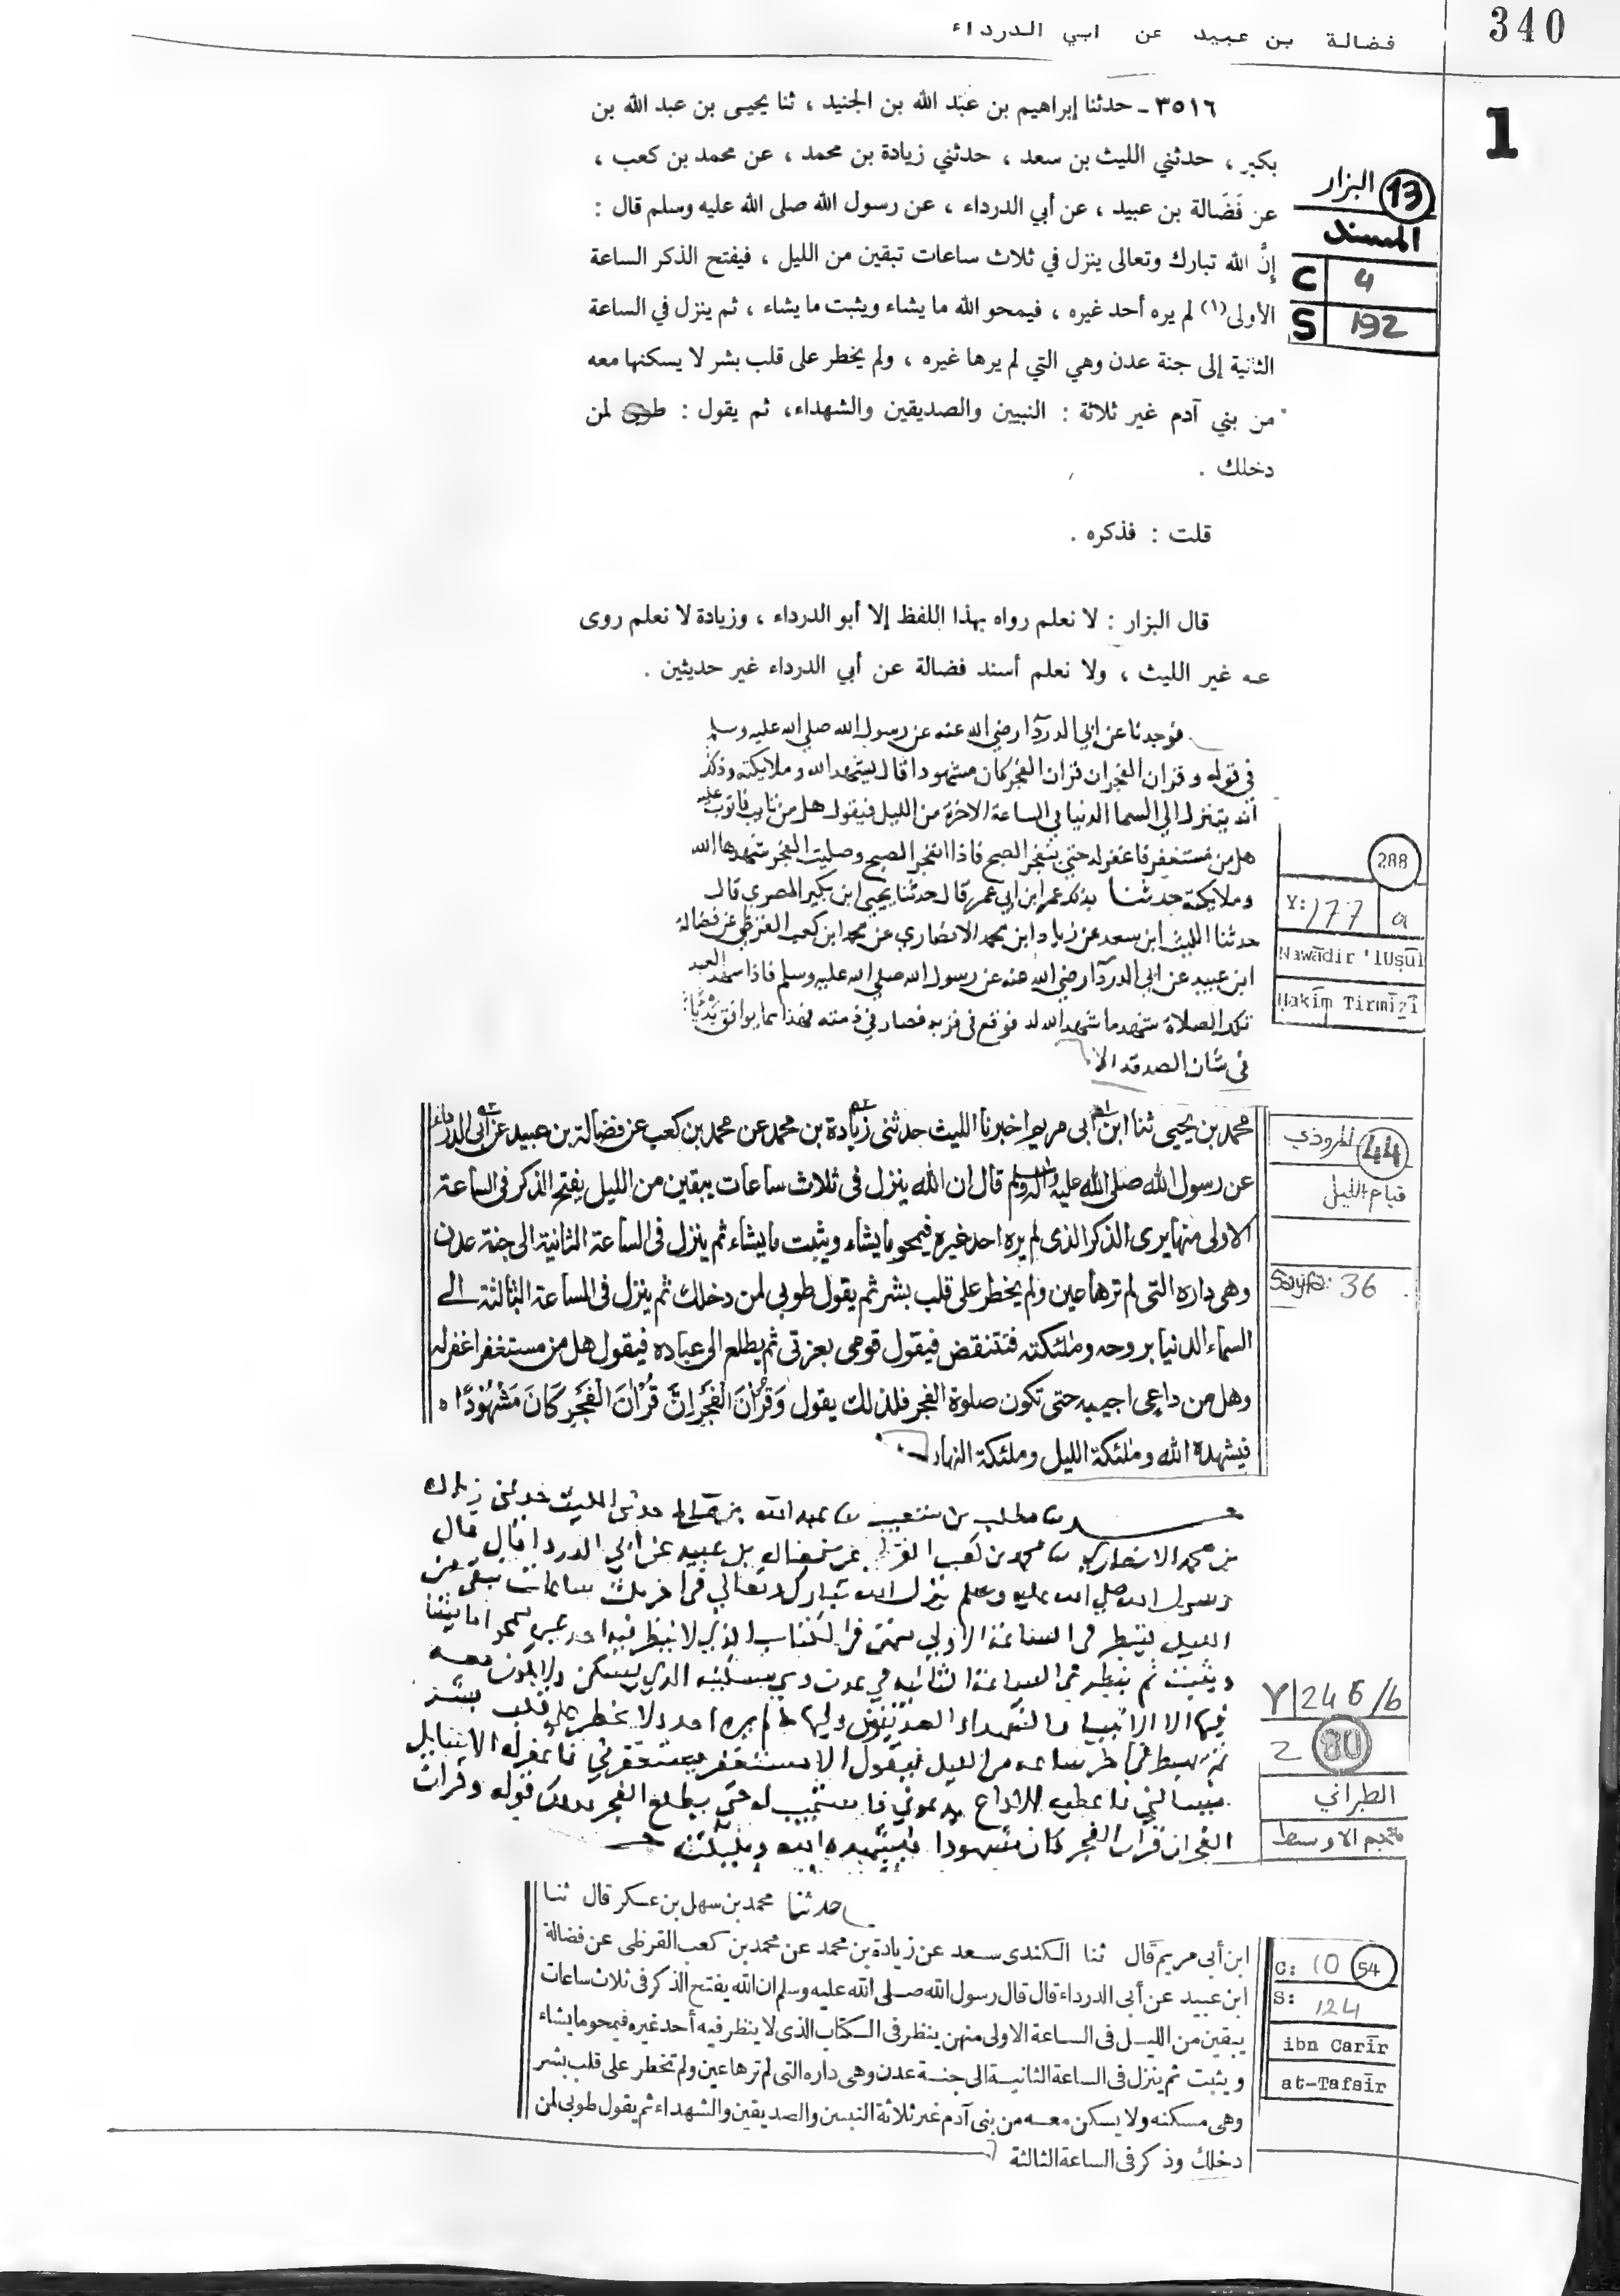 340
فضالة بن عبيد عن ابي الدرداء
1
٣٥١٦ - حدثنا إبراهيم بن عبد الله بن الجنيد ، ثنا يحيى بن عبد الله بن
بكير ، حدثني الليث بن سعد ، حدثني زيادة بن محمد ، عن محمد بن كعب ،
عن فَضَالة بن عبيد ، عن أبي الدرداء ، عن رسول الله صلى الله عليه وسلم قال :
إنَّ الله تبارك وتعالى ينزل في ثلاث ساعات تبقين من الليل ، فيفتح الذكر الساعة
الأولى (١) لم يره أحد غيره ، فيمحو الله ما يشاء ويثبت ما يشاء ، ثم ينزل في الساعة
الثانية إلى جنة عدن وهي التي لم يرها غيره ، ولم يخطر على قلب بشر لا يسكنها معه
من بني آدم غير ثلاثة : النبيين والصديقين والشهداء، ثم يقول : طوبى لمن
دخلك .
قلت : فذكره .
قال البزار : لا نعلم رواه بهذا اللفظ إلا أبو الدرداء ، وزيادة لا نعلم روى
عنه غير الليث ، ولا نعلم أسند فضالة عن أبي الدرداء غير حديثين .
13 البزار
المسند
C 4
S 192
فوجدنا عن ابي الدردا رضي الله عنه عن رسول الله صلي الله عليه وسلم
في قوله وقران الفجر ان قران الفجر كان مشهودا قال يشهد الله وملايكته وذكر
أنه يتنزل الي السما الدنيا في الساعة الاخرة من الليل فيقول هل من تايب فاتوب عليه
هل من مستغفر فاغفر له حتي ينفجر الصبح فاذا انفجر الصبح وصليت الفجر شهدها الله
وملايكته حدثنا بذلك عمر ابن ابي عمر قال حدثنا يحيى ابن بكير المصري قال
حدثنا الليث ابن سعد عن زياد ابن محمد الانصاري عن محمد ابن كعب القرظي عن فضالة
ابن عبيد عن ابي الدردا رضي الله عنه عن رسول الله صلي الله عليه وسلم فاذا شهد العبد
تلك الصلاة شهد ما شهد الله له فوقع في قربه فصار في ذمته فهذا مما يوافق
في شان الصدقه الا
288
Y: 177 a
Nawādir 'lUṣūl
Ḥakīm Tirmīzī
محمد بن يحيى ثنا ابن ابى مريم اخبرنا الليث حدثنى زيادة بن محمد عن محمد بن كعب عن فضالة بن عبيد عن ابى الدرداء
عن رسول الله صلى الله عليه واله وسلم قال ان الله ينزل فى ثلاث ساعات يبقين من الليل يفتح الذكر فى الساعة
الاولى منها يرى الذكر الذى لم يره احد غيره فيمحو ما يشاء ويثبت ما يشاء ثم ينزل فى الساعة الثانية الى جنة عدن
وهى داره التى لم ترها عين ولم يخطر على قلب بشر ثم يقول طوبى لمن دخلك ثم ينزل فى الساعة الثالثة الى
السماء الدنيا بروحه وملئكته فتنقض فيقول قومى بعزتى ثم يطلع الى عباده فيقول هل من مستغفر اغفر له
وهل من داعى اجيبه حتى تكون صلوة الفجر فلذلك يقول وَقُرْآنَ الْفَجْرِ اِنَّ قُرْآنَ الْفَجْرِ كَانَ مَشْهُوْدًا ه
فيشهده الله وملئكة الليل وملئكة النهار
44 المروذي
قيام الليل
Sayfa: 36
حدثنا مطلب بن شعيب نا عبد الله بن صالح حدثني الليث حدثني زيادة
بن محمد الانصاري نا محمد بن كعب القرظي عن فضاله بن عبيد عن ابي الدردا قال قال
رسول الله صلي الله عليه وسلم ينزل الله تبارك وتعالي في اخر ثلاث ساعات تبقين من
الليل ينظر في الساعة الاولي منهن في الكتاب الذي لا ينظر فيه احد غيره فيمحوا ما يشا
ويثبت ثم ينظر في الساعة الثانيه في عدن وهي مسكنه الذي يسكن ولا يكون معه
فيها الا الانبيا والشهدا والصديقين وفيها ما لم يره احد ولا يخطر علي قلب بشر
ثم يهبط في اخر ساعه من الليل فيقول الا مستغفر يستغفرني فاغفر له الا سايل
يسالني فاعطيه الا داع يدعوني فاستجيب له حتي يطلع الفجر فذلك قوله وقران
الفجر ان قران الفجر كان مشهودا فيشهده الله وملائكته
Y 246/b
2 80
الطبراني
معجم الاوسط
حدثنا محمد بن سهل بن عسكر قال ثنا
ابن أبى مريم قال ثنا الكندى سعد عن زيادة بن محمد عن محمد بن كعب القرظى عن فضالة
ابن عبيد عن أبى الدرداء قال قال رسول الله صلى الله عليه وسلم ان الله يفتح الذكر فى ثلاث ساعات
يبقين من الليل فى الساعة الاولى منهن ينظر فى الكتاب الذى لا ينظر فيه أحد غيره فيمحو ما يشاء
ويثبت ثم ينزل فى الساعة الثانية الى جنة عدن وهى داره التى لم ترها عين ولم تخطر على قلب بشر
وهى مسكنه ولا يسكن معه من بنى آدم غير ثلاثة النبيين والصديقين والشهداء ثم يقول طوبى لمن
دخلك وذكر فى الساعة الثالثة
C: 10 54
S: 124
ibn Carīr
at-Tafsīr